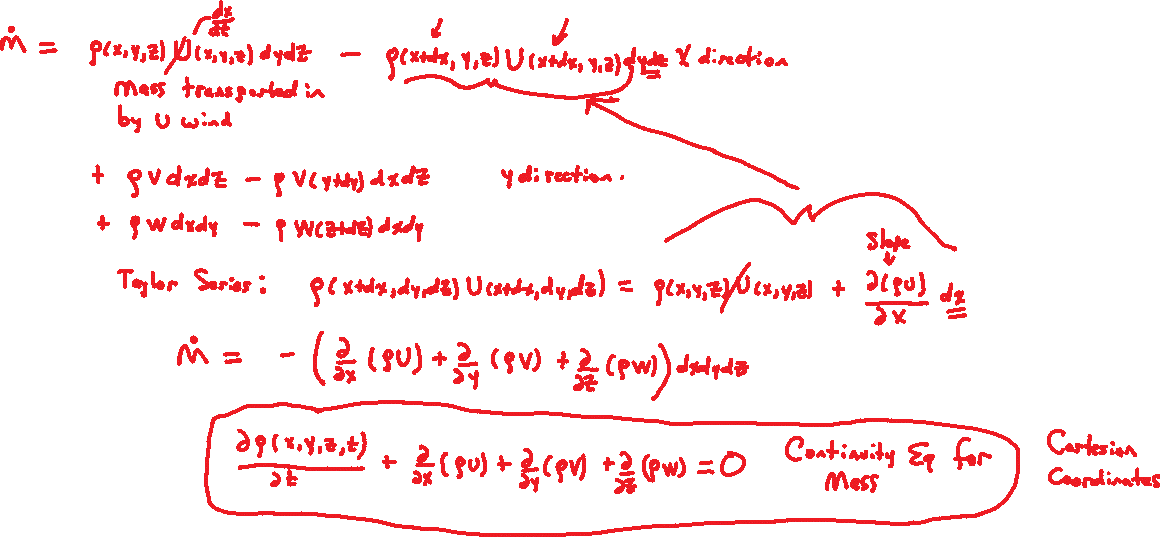 dx/dt
ṁ = ρ(x,y,z) U(x,y,z) dydz − ρ(x+dx, y,z) U(x+dx, y,z) dydz X direction
mass transported in
by U wind
+ ρV dxdz − ρV(y+dy) dxdz y direction.
+ ρW dxdy − ρW(z+dz) dxdy
Slope
Taylor Series: ρ(x+dx,dy,dz) U(x+dx,dy,dz) = ρ(x,y,z) U(x,y,z) + ∂(ρU)/∂x dx
ṁ = − (∂/∂x (ρU) + ∂/∂y (ρV) + ∂/∂z (ρW)) dxdydz
∂ρ(x,y,z,t)/∂t + ∂/∂x (ρU) + ∂/∂y (ρV) + ∂/∂z (ρW) = 0 Continuity Eq for
Mass
Cartesian
Coordinates